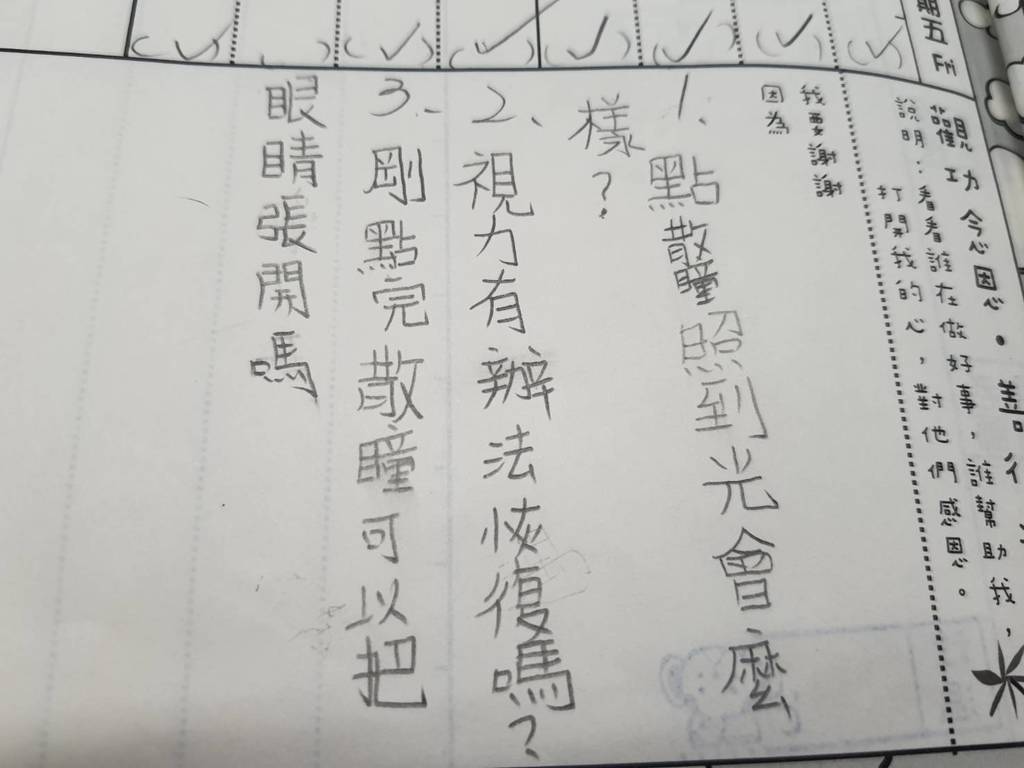 期五 Fri
觀功念恩•善行
說明：看看誰在做好事，誰幫助我，
打開我的心，對他們感恩。
我要謝謝
因為
1、點散瞳照到光會麼
樣？
2、視力有辦法恢復嗎？
3、剛點完散瞳可以把
眼睛張開嗎